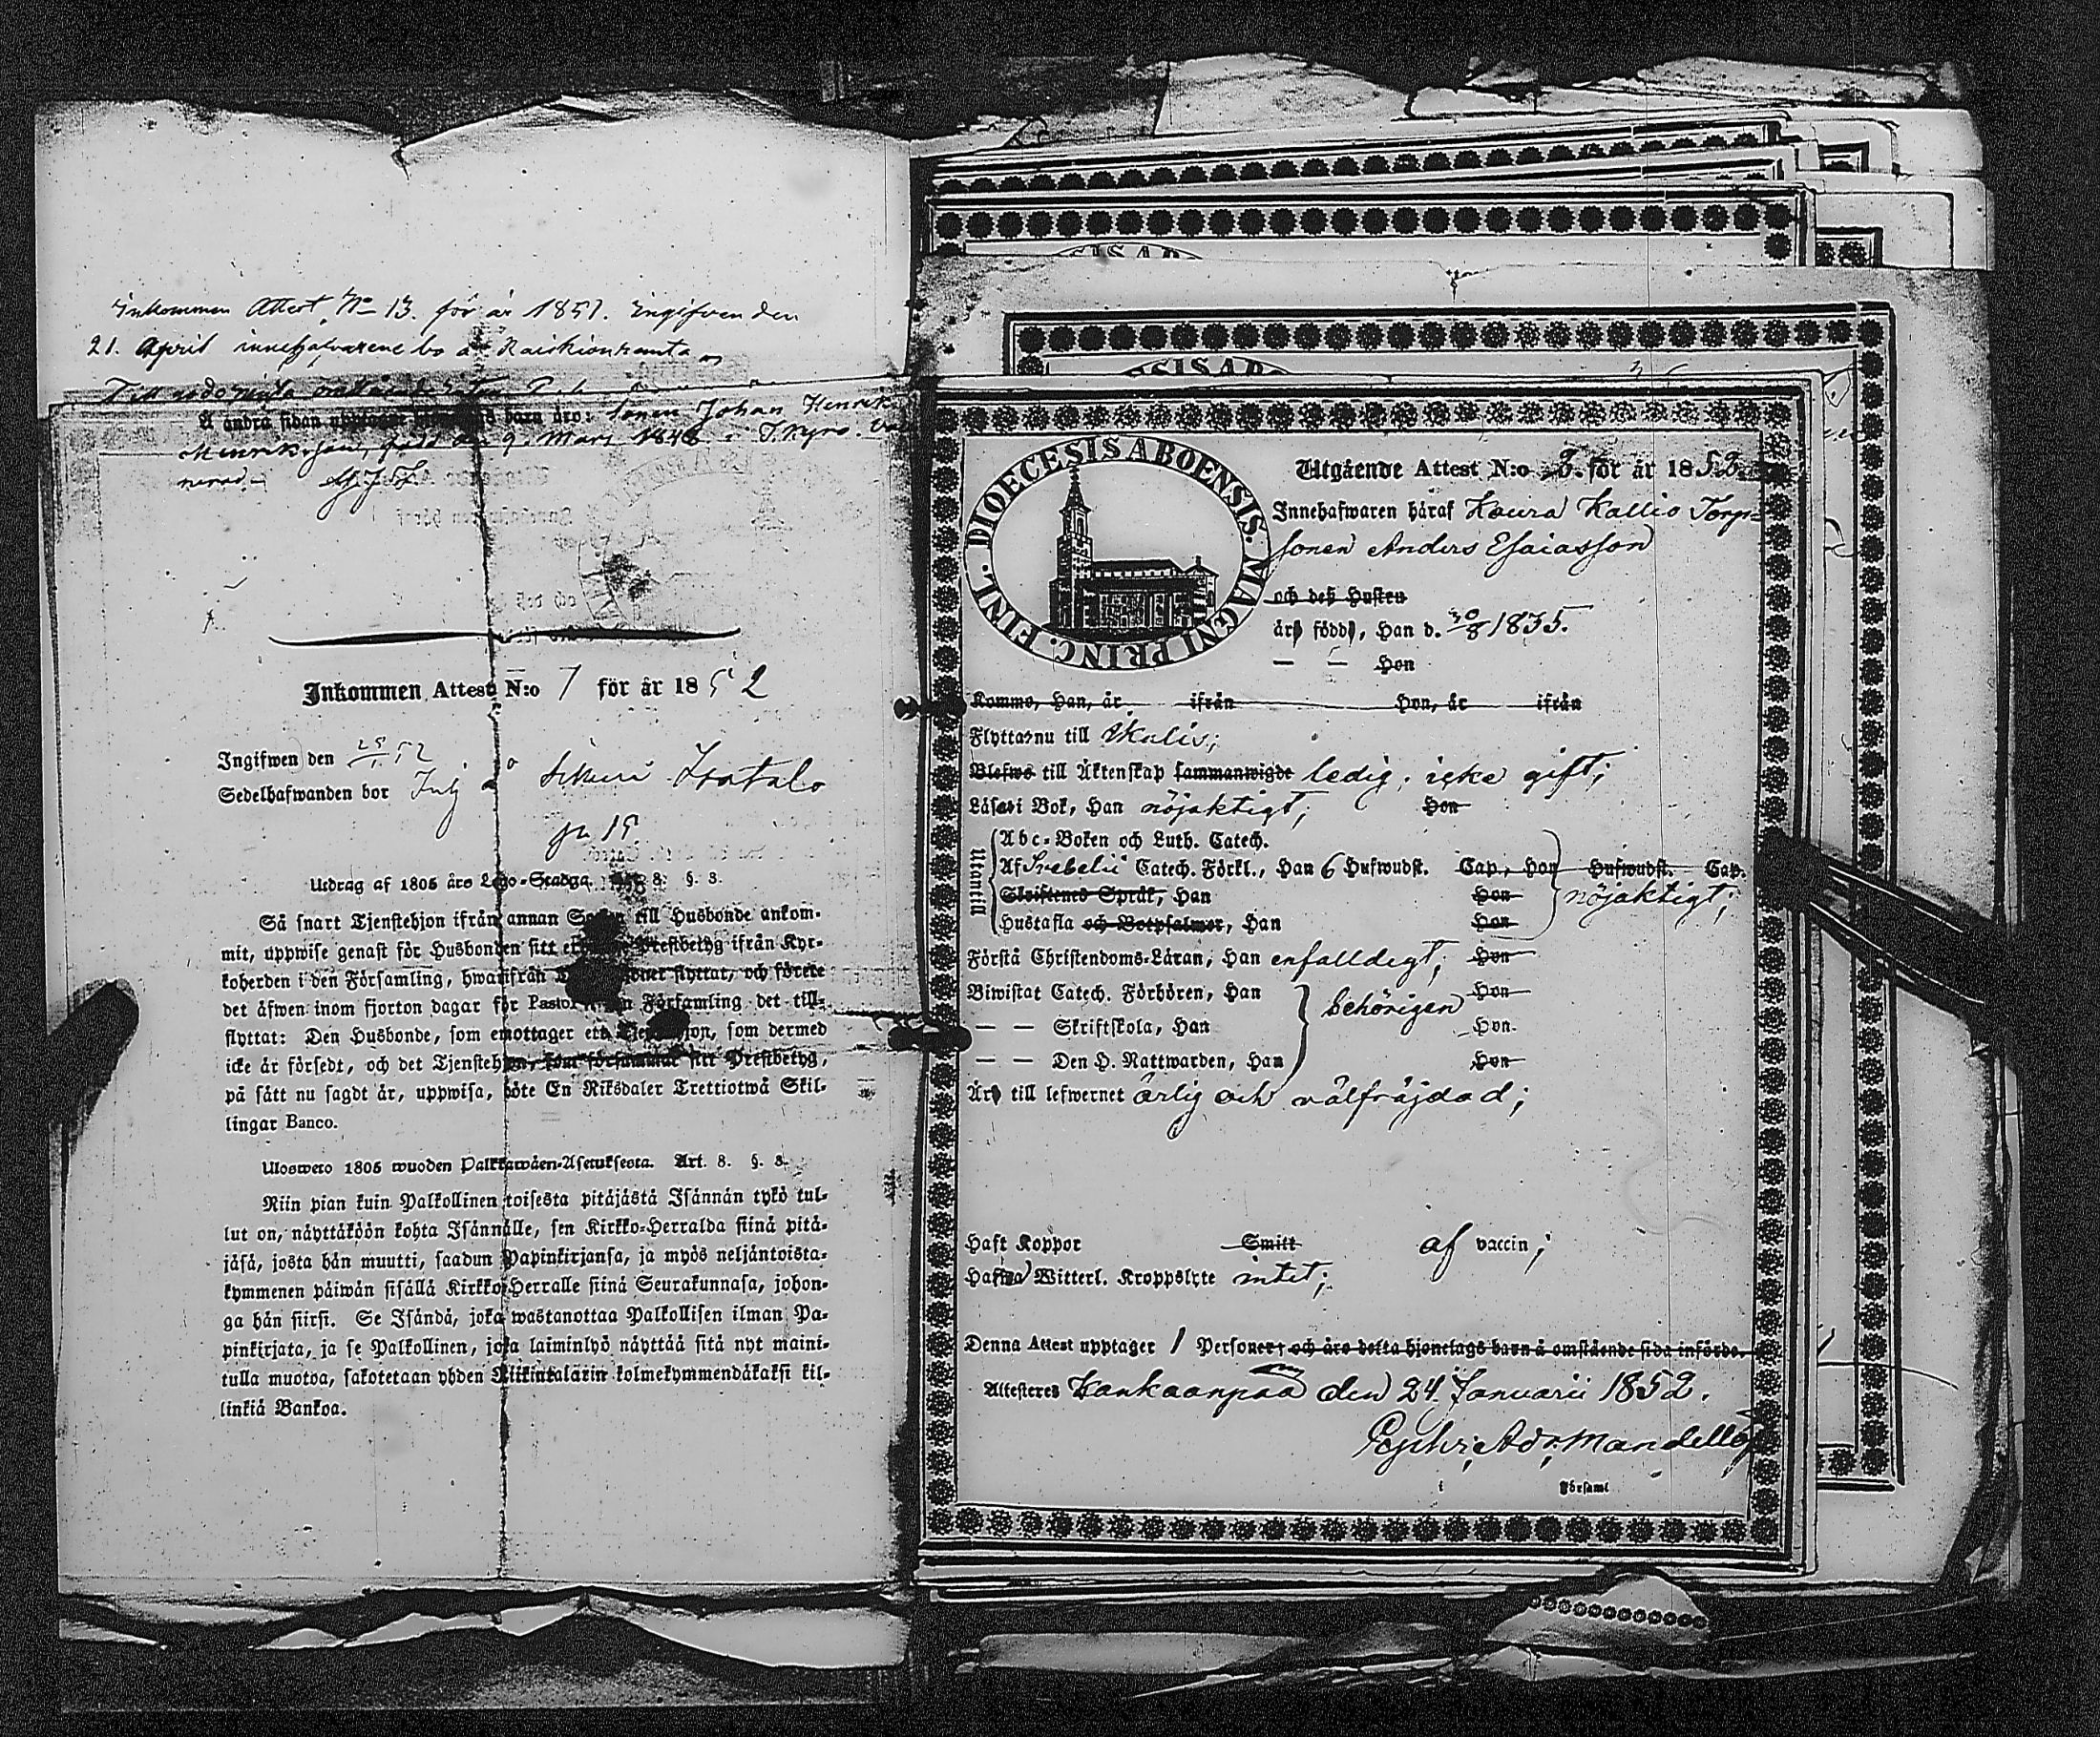 Inkommen Attest No 13. för år 1851. Ingifven den
21. April innehafvarene bo å Raiskionkanta
Å andra sidan barn äro: sonen Johan Henrik
Henriksson, född den 9. Mars 1848 i T.kyro
Inkommen Attest N:o 7 för år 1852
Ingifwen den 25/1 52
Sedelhafwanden bor Inh å Sikuri Isotalo
pn 15
Utdrag af 1805 års Lego-Stadga. 8. §. 3.
Så snart Tjenstehjon ifrån annan Socken till Husbonde ankom-
mit, uppwise genast för Husbonden sitt Prestbetyg ifrån Kyr-
koherden i den Församling, hwarifrån flyttat, och förete
det äfwen inom fjorton dagar för Pastor Församling det till-
flyttat: Den Husbonde, som emottager ett Tjenstehjon, som dermed
icke är försedt, och det Tjenstehjon, som försummar sitt Prestbetyg,
på sätt nu sagdt är, uppwisa, böte En Riksdaler Trettiotwå Skil-
lingar Banco.
Ulosweto 1805 wuoden Palkkawäen-Asetuksesta. Art. 8. §. 3.
Niin pian kuin Palkollinen toisesta pitäjästä Isännän tykö tul-
lut on, näyttäköön kohta Isännälle, sen Kirkko-Herralda siinä pitä-
jäsä, josta hän muutti, saadun Papinkirjansa, ja myös neljäntoista-
kymmenen päiwän sisällä Kirkko-Herralle siinä Seurakunnasa, johon-
ga hän siirsi. Se Isändä, joka wastanottaa Palkollisen ilman Pa-
pinkirjata, ja se Palkollinen, joka laiminlyö näyttää sitä nyt maini-
tulla muotoa, sakotetaan yhden Riikintalarin kolmekymmendäkaksi kil-
linkiä Bankoa.
DIOECESIS ABOENSIS. MAGNI PRINC. FINL.
Utgående Attest N:o 2. för år 1852.
Innehafwaren häraf Koura Kallio Torp-
sonen Anders Esaiasson
och deß Hustru
är född, Han d. 30/8 1835.
— — Hon
Komme, Han, år ifrån Hon, år ifrån
Flyttar nu till Ikalis;
Blefwo till Äktenskap sammanwigde ledig, icke gift;
Läser i Bok, Han nöjaktigt; Hon
Utantill
Abc-Boken och Luth. Catech.
Af Svebelii Catech. Förkl., Han 6 Hufwudst. Cap., Hon Hufwudst. Cap.
Skriftenes Språk, Han Hon nöjaktigt;
Hustafla och Botpsalmer, Han Hon
Förstå Christendoms-Läran, Han enfalldigt; Hon
Biwistat Catech. Förhören, Han behörigen Hon
— — Skriftskola, Han Hon
— — Den H. Nattwarden, Han Hon
Är till lefwernet ärlig och välfräjdad;
Haft Koppor Smitt af vaccin;
Hafwa Witterl. Kroppslyte intet;
Denna Attest upptager 1 Personer, och äro detta hjonelags barn å omstående sida införde.
Attesteres Kankaanpää den 24. Januarii 1852.
i Församl